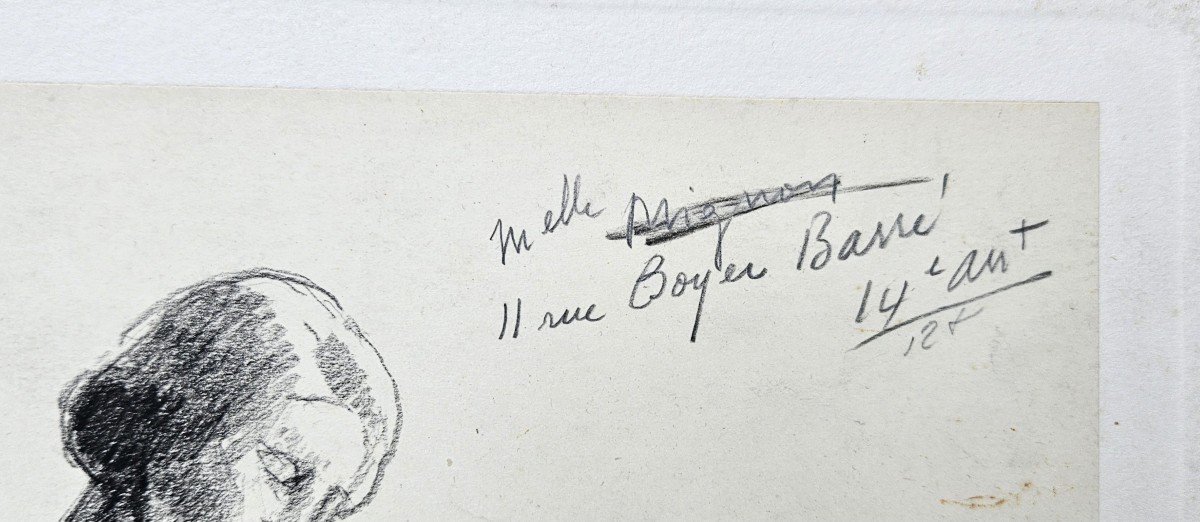 Melle Mignon
11 rue Boyer Barré
14e arrt